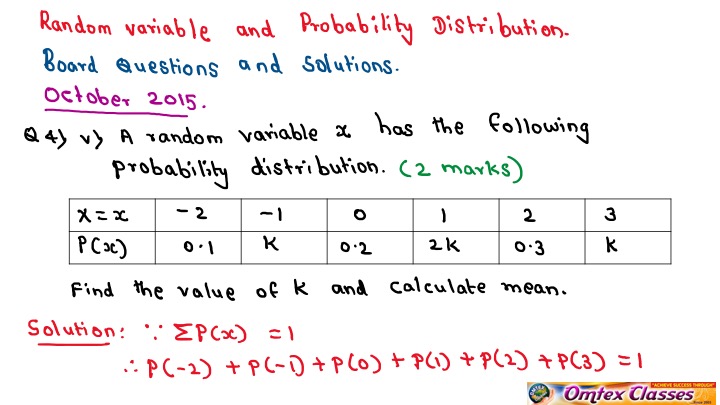 Random variable and Probability Distribution.
Board Questions and Solutions.
October 2015.
Q 4) v) A random variable x has the following
probability distribution. (2 marks)
X = x -2 -1 0 1 2 3
P(x) 0.1 K 0.2 2K 0.3 K
Find the value of K and calculate mean.
Solution: ∵ ΣP(x) = 1
∴ P(-2) + P(-1) + P(0) + P(1) + P(2) + P(3) = 1
"ACHIEVE SUCCESS THROUGH"
Omtex Classes